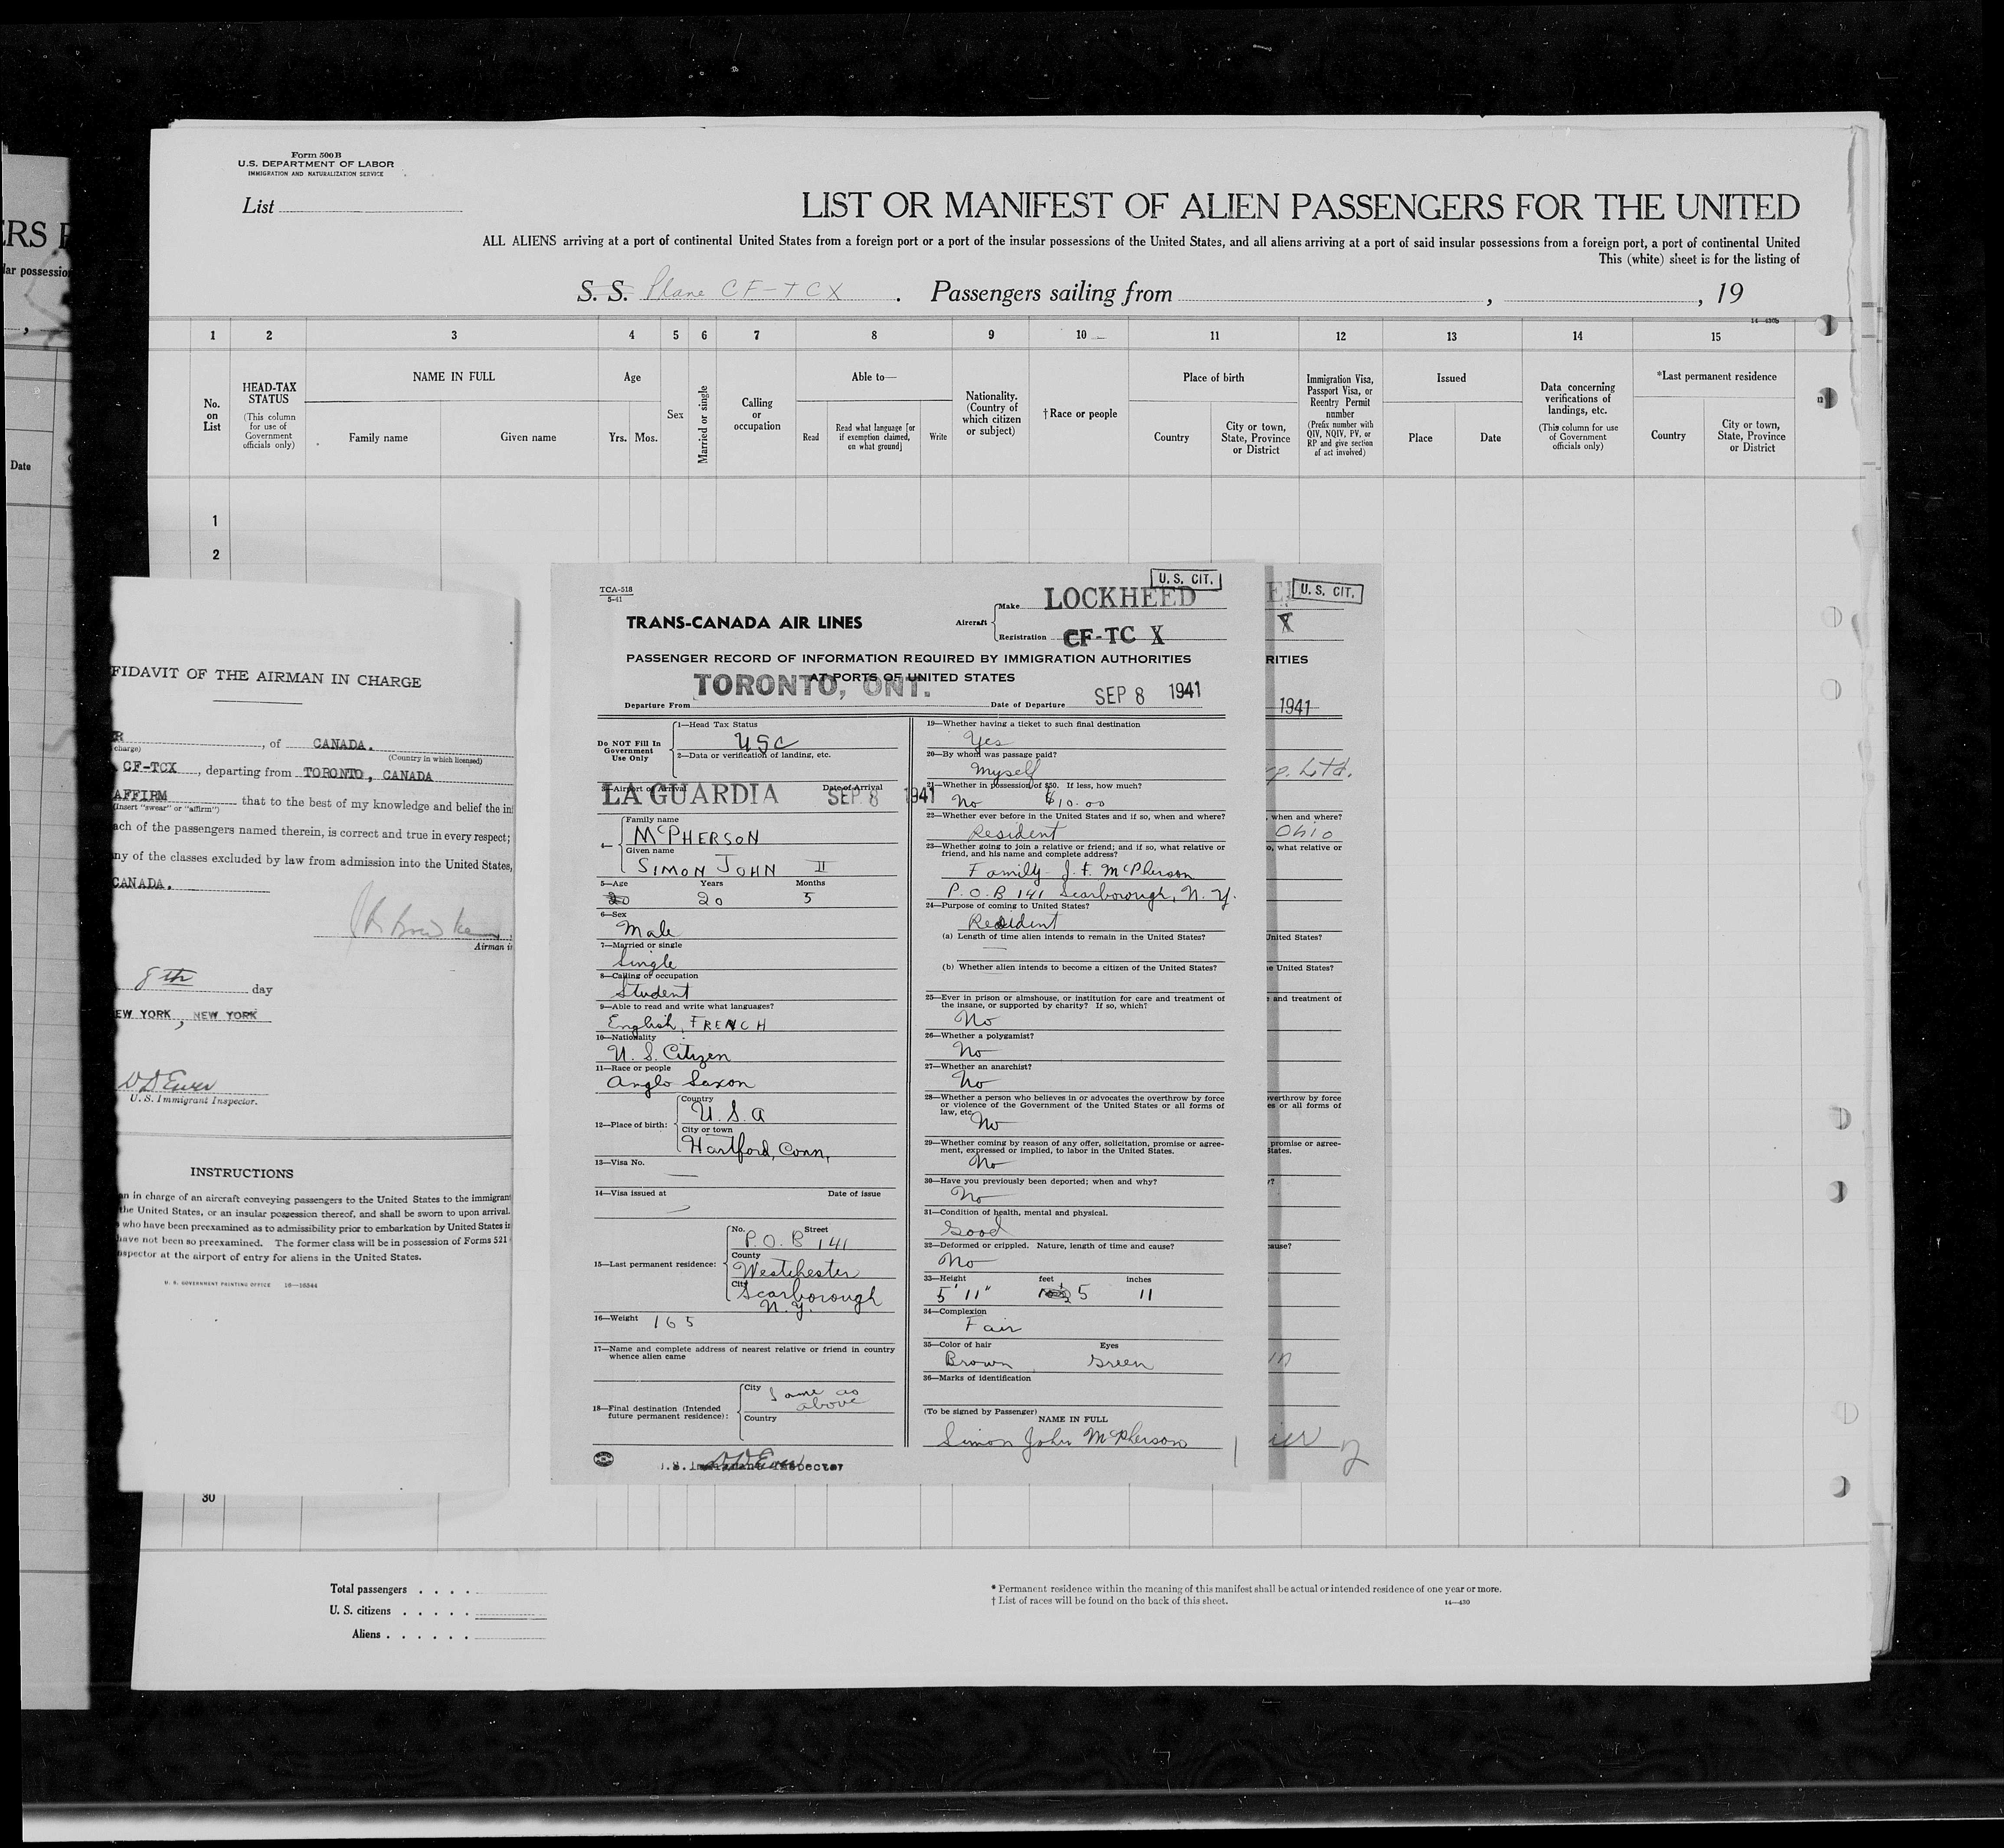 ERS F
lar possession
,
Date
Form 500 B
U.S. DEPARTMENT OF LABOR
IMMIGRATION AND NATURALIZATION SERVICE
List
LIST OR MANIFEST OF ALIEN PASSENGERS FOR THE UNITED
ALL ALIENS arriving at a port of continental United States from a foreign port or a port of the insular possessions of the United States, and all aliens arriving at a port of said insular possessions from a foreign port, a port of continental United
This (white) sheet is for the listing of
S. S. Plane CF-TCX . Passengers sailing from , , 19
14—430b
1 2 3 4 5 6 7 8 9 10 11 12 13 14 15
No. on List
HEAD-TAX STATUS
(This column for use of Government officials only)
NAME IN FULL
Family name Given name
Age
Yrs. Mos.
Sex
Married or single
Calling or occupation
Able to—
Read
Read what language [or if exemption claimed, on what ground]
Write
Nationality. (Country of which citizen or subject)
†Race or people
Place of birth
Country
City or town, State, Province or District
Immigration Visa, Passport Visa, or Reentry Permit number
(Prefix number with QIV, NQIV, PV, or RP and give section of act involved)
Issued
Place Date
Data concerning verifications of landings, etc.
(This column for use of Government officials only)
*Last permanent residence
Country
City or town, State, Province or District
1
2
FIDAVIT OF THE AIRMAN IN CHARGE
R , of CANADA.
charge) (Country in which licensed)
CF-TCX , departing from TORONTO, CANADA
AFFIRM that to the best of my knowledge and belief the in
(Insert "swear" or "affirm")
ach of the passengers named therein, is correct and true in every respect;
ny of the classes excluded by law from admission into the United States,
CANADA.
Airman i
8th day
EW YORK, NEW YORK
DDEwer
U. S. Immigrant Inspector.
INSTRUCTIONS
an in charge of an aircraft conveying passengers to the United States to the immigrant
the United States, or an insular possession thereof, and shall be sworn to upon arrival.
who have been preexamined as to admissibility prior to embarkation by United States i
have not been so preexamined. The former class will be in possession of Forms 521
nspector at the airport of entry for aliens in the United States.
U. S. GOVERNMENT PRINTING OFFICE 16—16344
TCA-518
5-41
U. S. CIT.
TRANS-CANADA AIR LINES
Aircraft
Make LOCKHEED
Registration CF-TC X
PASSENGER RECORD OF INFORMATION REQUIRED BY IMMIGRATION AUTHORITIES
AT PORTS OF UNITED STATES
Departure From TORONTO, ONT. Date of Departure SEP 8 1941
Do NOT Fill In Government Use Only
1—Head Tax Status
USC
2—Data or verification of landing, etc.
3—Airport of Arrival Date of Arrival
LA GUARDIA SEP 8 1941
4—
Family name
McPHERSON
Given name
SIMON JOHN II
5—Age Years Months
20 20 5
6—Sex
Male
7—Married or single
Single
8—Calling or occupation
Student
9—Able to read and write what languages?
English, FRENCH
10—Nationality
U. S. Citizen
11—Race or people
Anglo Saxon
12—Place of birth:
Country
U. S. A
City or town
Hartford, Conn,
13—Visa No.
—
14—Visa issued at Date of issue
15—Last permanent residence:
No. Street
P. O. B 141
County
Westchester
City
Scarborough
N. Y.
16—Weight 165
17—Name and complete address of nearest relative or friend in country
whence alien came
18—Final destination (Intended
future permanent residence):
City Same as above
Country
U.S. Immigrant Inspector
DDEwer
19—Whether having a ticket to such final destination
Yes
20—By whom was passage paid?
Myself
21—Whether in possession of $50. If less, how much?
No $10.00
22—Whether ever before in the United States and if so, when and where?
Resident
23—Whether going to join a relative or friend; and if so, what relative or
friend, and his name and complete address?
Family - J. F. McPherson
P. O. B 141 Scarborough, N. Y.
24—Purpose of coming to United States?
Resident
(a) Length of time alien intends to remain in the United States?
—
(b) Whether alien intends to become a citizen of the United States?
25—Ever in prison or almshouse, or institution for care and treatment of
the insane, or supported by charity? If so, which?
No
26—Whether a polygamist?
No
27—Whether an anarchist?
No
28—Whether a person who believes in or advocates the overthrow by force
or violence of the Government of the United States or all forms of
law, etc.
No
29—Whether coming by reason of any offer, solicitation, promise or agree-
ment, expressed or implied, to labor in the United States.
No
30—Have you previously been deported; when and why?
No
31—Condition of health, mental and physical.
Good
32—Deformed or crippled. Nature, length of time and cause?
No
33—Height feet inches
5' 11" 5 11
34—Complexion
Fair
35—Color of hair Eyes
Brown Green
36—Marks of identification
(To be signed by Passenger)
NAME IN FULL
Simon John McPherson
1
U. S. CIT.
X
RITIES
1941
p. Ltd.
when and where?
Ohio
o, what relative or
United States?
e United States?
and treatment of
overthrow by force
es or all forms of
promise or agree-
States.
?
ause?
in
ier
2
30
Total passengers . . . .
U. S. citizens . . . . .
Aliens . . . . . .
* Permanent residence within the meaning of this manifest shall be actual or intended residence of one year or more.
† List of races will be found on the back of this sheet.
14—430